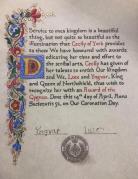 Service to ones kingdom is a beautiful
thing, but not quite so beautiful as the
illumination that Cecily of York provides
to those We have honoured with awards.
Dedicating her time and effort
to the scribal arts, Cecily has given of
her talents to enrich Our Kingdom
and We, Lucia and Yngvar, King
and Queen of Northshield, thus wish to
recognize her with an Award of the
Cygnus. Done this 19th day of April, Anno
Societatis, on Our Coronation Day.
Yngvar